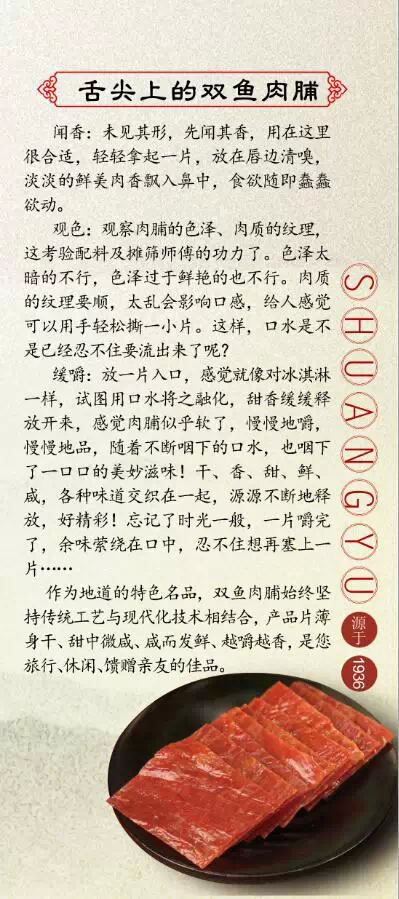 舌尖上的双鱼肉脯
闻香：未见其形，先闻其香，用在这里
很合适，轻轻拿起一片，放在唇边清嗅，
淡淡的鲜美肉香飘入鼻中，食欲随即蠢蠢
欲动。
观色：观察肉脯的色泽、肉质的纹理，
这考验配料及摊筛师傅的功力了。色泽太
暗的不行，色泽过于鲜艳的也不行。肉质
的纹理要顺，太乱会影响口感，给人感觉
可以用手轻松撕一小片。这样，口水是不
是已经忍不住要流出来了呢？
缓嚼：放一片入口，感觉就像对冰淇淋
一样，试图用口水将之融化，甜香缓缓释
放开来，感觉肉脯似乎软了，慢慢地嚼，
慢慢地品，随着不断咽下的口水，也咽下
了一口口的美妙滋味！干、香、甜、鲜、
咸，各种味道交织在一起，源源不断地释
放，好精彩！忘记了时光一般，一片嚼完
了，余味萦绕在口中，忍不住想再塞上一
片……
作为地道的特色名品，双鱼肉脯始终坚
持传统工艺与现代化技术相结合，产品片薄
身干、甜中微咸、咸而发鲜、越嚼越香，是您
旅行、休闲、馈赠亲友的佳品。
SHUANGYU
源于
1936